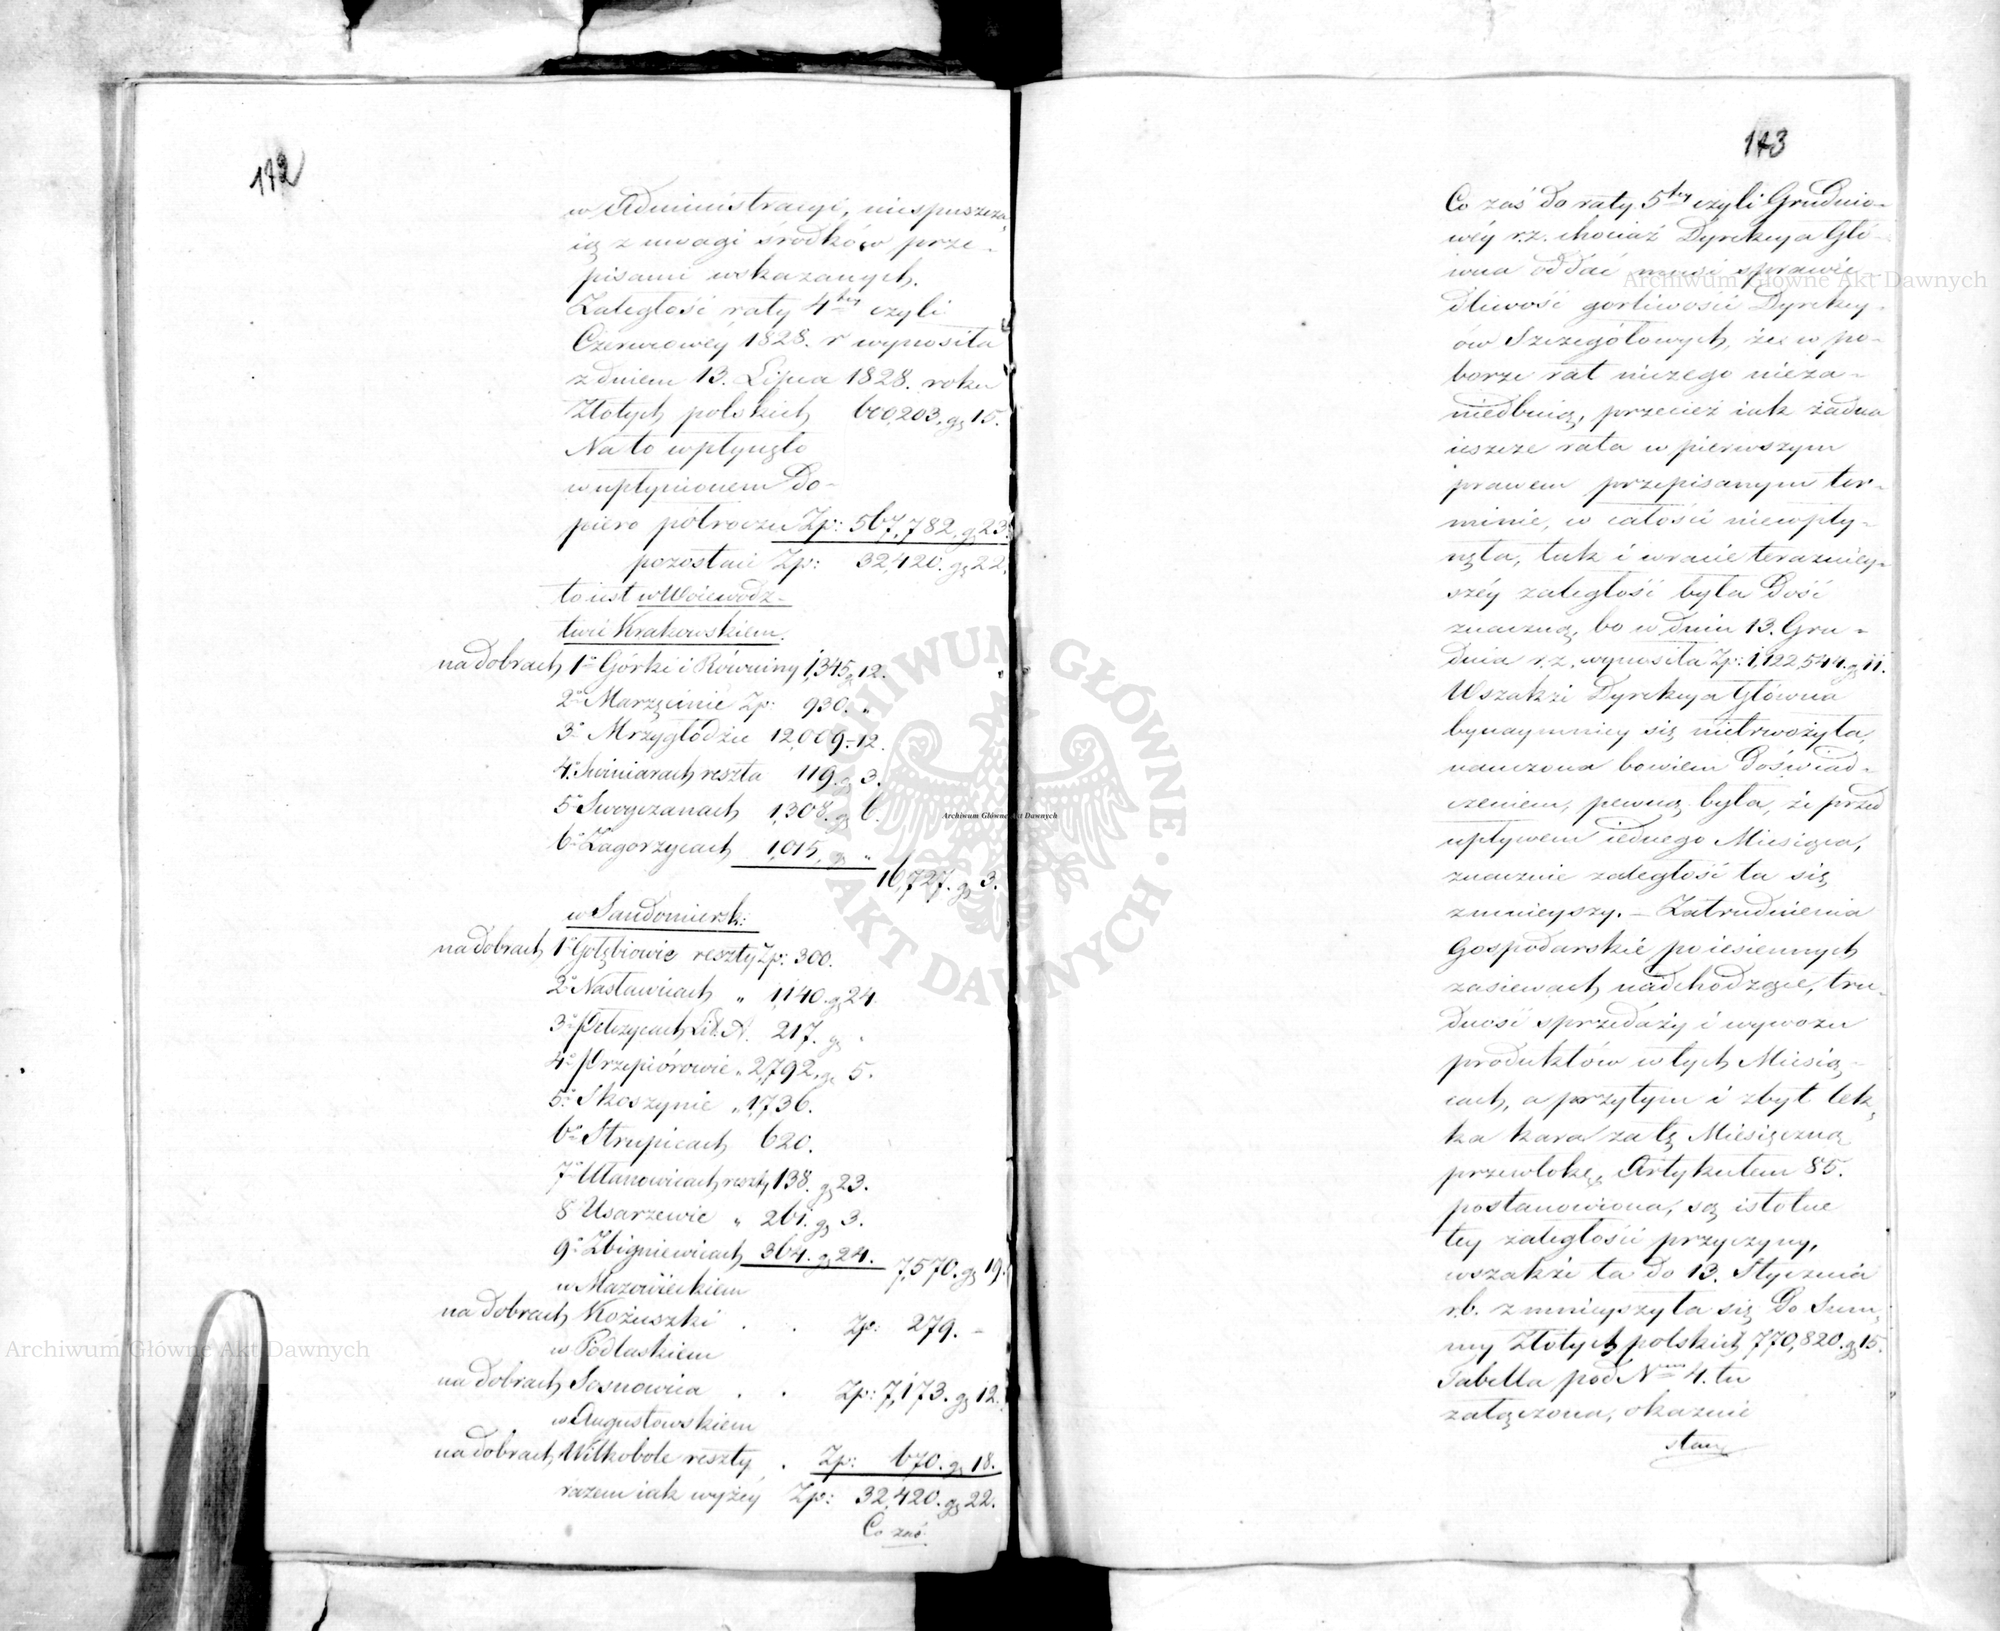 172
w Administracyi, niespuszcza
iąc z uwagi środków prze-
pisami wskazanych.
Zaległość raty 4tey czyli
Czerwcowéy 1828. r wynosiła
z dniem 13. Lipca 1828. roku
Złotych polskich 600,203. gr 15.
Na to wpłynęło
w upłynionem do-
piero półroczu Zp: 567,782. gr 23.
pozostaie Zp: 32,420. gr 22.
to iest w Woiewódz-
twie Krakowskiem.
na dobrach 1o Górki i Równiny 1,345 gr 12.
2o Marzęcinie Zp: 930. "
3o Mrzygłodzie 12,009.-12.
4o Swiniarach reszta 119. gr 3.
5o Swoyczanach 1,308. gr 6.
6o Zagorzycach 1,015. gr "
16,727. gr 3.
w Sandomiersk:
na dobrach 1o Gołębiowie reszty Zp: 300.
2o Nasławicach " 1140. gr 24.
3o Pełczycach Lit. A. 217. gr "
4o Przepiórowie " 2,792. gr 5.
5o Skoszynie " 1,736.
6o Strupicach 620.
7o Ułanowicach reszty 138. gr 23.
8 Usarzewie " 261. gr 3.
9o Zbigniewicach 364. gr 24. 7,570. gr 19.
w Mazowieckiem
na dobrach Kożuszki . . Zp: 279. -
w Podlaskiem
na dobrach Sosnowica . . Zp: 7,173. gr 12.
w Augustowskiem
na dobrach Wilkobole reszty . Zp: 670. gr 18.
razem iak wyżéy Zp: 32,420. gr 22.
Co zaś
173
Co zaś do raty 5tey czyli Grudnio-
wéy r.z. chociaż Dyrekcya Głó-
wna oddać musi sprawie-
dliwość gorliwości Dyrekcy-
ów Szczegółowych, że w po-
borze rat niczego nieza-
niedbuią, przecież iak żadna
ieszcze rata w pierwszym
prawem przepisanym ter-
minie, w całości niewpły-
nęła, tak i w racie teraźniey-
széy zaległość była dość
znaczną, bo w dniu 13. Gru-
dnia r.z. wynosiła Zp: 1,122,544. gr 11.
Wszakże Dyrekcya Główna
bynaymniey się nietrwożyła,
nauczona bowiem doświad-
czeniem, pewną była, że przed
upływem iednego Miesiąca,
znacznie zaległość ta się
zmnieyszy. - Zatrudnienia
Gospodarskie po iesiennych
zasiewach nadchodzące, tru-
dność sprzedaży i wywozu
produktów w tych Miesią-
cach, a przytym i zbyt lek-
ka kara za tę Miesięczną
przewlokę, Artykułem 85.
postanowiona, są istotne
tey zaległości przyczyny,
wszakże ta do 13. Stycznia
rb. zmnieyszyła się do Sum-
my Złotych polskich 770,820. gr 15.
Tabella pod Nrem 4. tu
załączona, okazuie
stan
Archiwum Główne Akt Dawnych
Archiwum Główne Akt Dawnych
Archiwum Główne Akt Dawnych
ARCHIWUM GŁÓWNE · AKT DAWNYCH ·